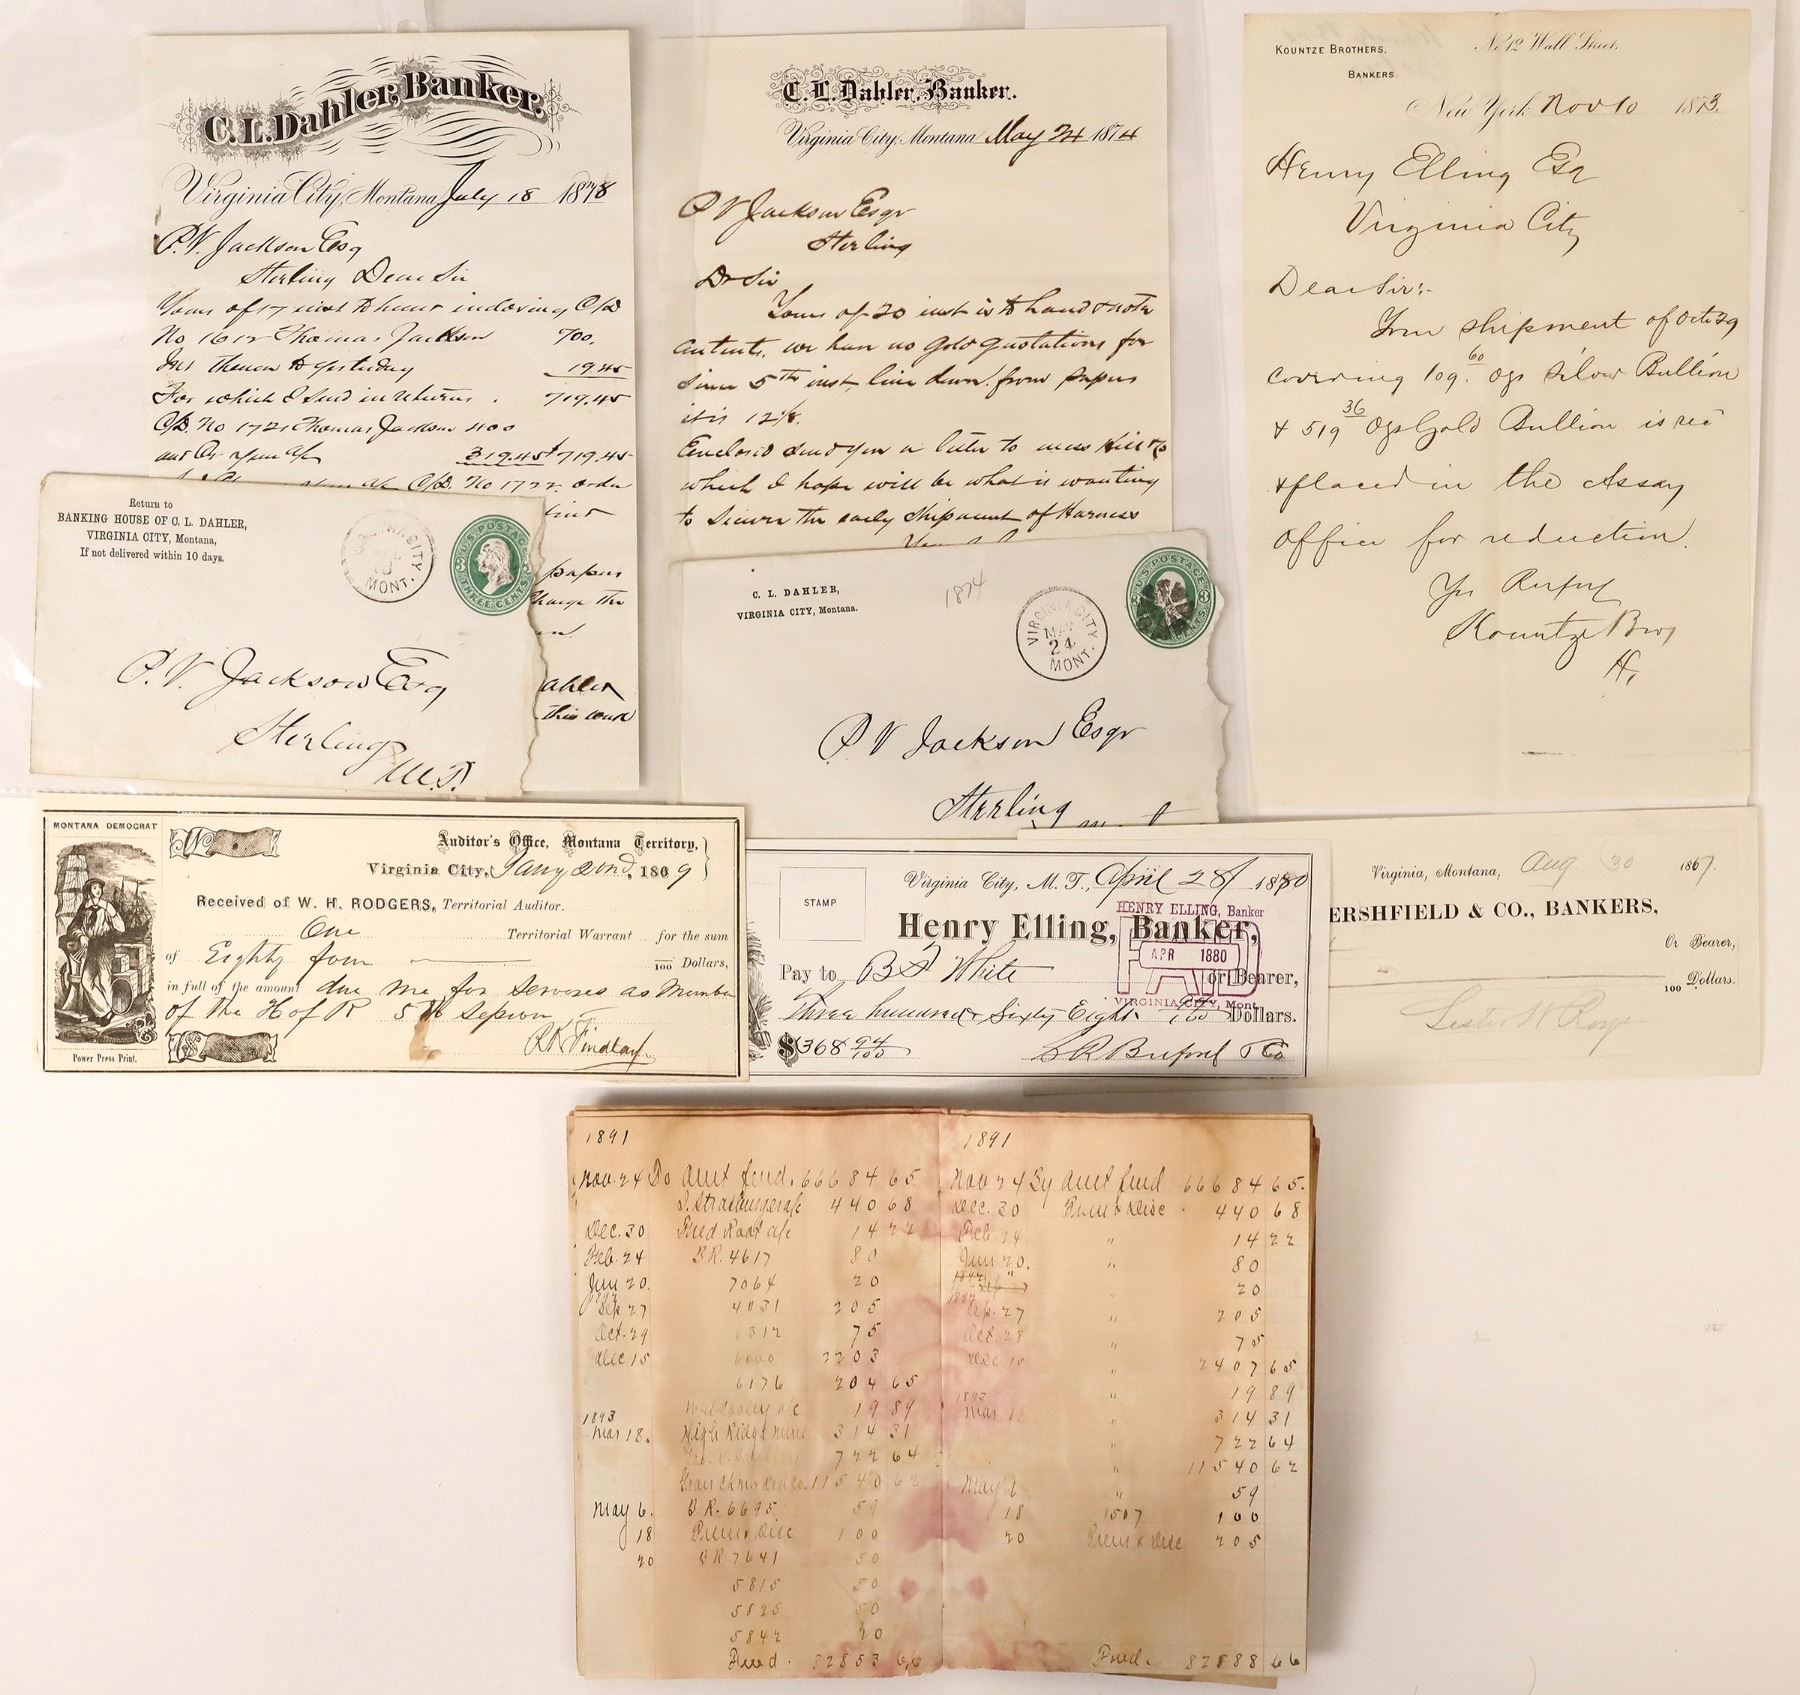 C. L. Dahler, Banker.
Virginia City, Montana July 18 1878
P. V. Jackson Esq
Sterling Dear Sir
Yours of 17 inst to hand inclosing C/D
No 1612 Thomas Jackson 700.
Int thereon to yesterday 19.45
For which I send in returns . 719.45
C/D. No 1721 Thomas Jackson 400
and Cr your a/c 319.45 719.45
C/D. No 1722 order
papers
Charge the
ahler
Return to
BANKING HOUSE OF C. L. DAHLER,
VIRGINIA CITY, Montana,
If not delivered within 10 days.
VIRGINIA CITY
MONT.
U.S. POSTAGE
THREE CENTS
P. V. Jackson Esq
Sterling
M.T.
C. L. Dahler, Banker.
Virginia City, Montana May 24 1874
P V Jackson Esqr
Sterling
Dr Sir
Yours of 20 inst is to hand & note
contents. we have no Gold quotations for
since 5th inst, line down. from papers
it is 12 1/8.
Enclosed send you a letter to mess Hill & Co
which I hope will be what is wanting
to secure the early shipment of Harness
C. L. DAHLER,
VIRGINIA CITY, Montana.
1874
VIRGINIA CITY
MAY
24
MONT.
U.S. POSTAGE
P V Jackson Esqr
Sterling
KOUNTZE BROTHERS,
BANKERS.
No. 12 Wall Street.
New York Nov 10 1873.
Henry Elling Esq
Virginia City
Dear Sir:-
Your shipment of Oct 29
covering 109.60 ozs Silver Bullion
& 519 36 Ozs Gold Bullion is rec
& placed in the Assay
office for reduction.
Yrs
Kountze Bros
H.
MONTANA DEMOCRAT
Power Press Print.
Auditor's Office, Montana Territory,
Virginia City, Jany 2nd, 1869
Received of W. H. RODGERS, Territorial Auditor.
One Territorial Warrant for the sum
of Eighty four 100 Dollars,
in full of the amount due me for Services as Member
of the H of R 5th Session
STAMP
Virginia City, M. T., April 28 1880
Henry Elling, Banker,
HENRY ELLING, Banker
APR 1880
VIRGINIA CITY, Mont.
Pay to B F White or Bearer,
Three hundred & Sixty Eight 94/100 Dollars.
$368 94/100
Virginia, Montana, Aug 30 1867.
ERSHFIELD & CO., BANKERS,
Or Bearer,
100 Dollars.
1891
Nov. 24 To amt fwd. 66684 65
440 68
Dec. 30 1422
Feb. 24 B.R. 4617 80
Jun 20. 7064 20
Sep. 27 4031 205
Oct. 29 312 75
Dec 15 2203
6176 204 65
19 89
1893
Mar 18. High Ridge 314 31
722 64
11540 62
May 6. B.R. 6695 59
18 Prem & Disc 100
20 BR 7641 50
5815 50
5825 50
5842 20
Fwd. 82853 66
1891
Nov 24 By amt fwd 66684 65.
Dec. 30 Prem & Disc. 440 68
Feb. 24 " 14 22
Jun 20. " 80
20
1892
Sep. 27 " 205
Oct. 28 " 75
Dec. 15 " 2407 65
" 19 89
1893
Mar 18 " 314 31
" 722 64
" 11540 62
May 6 " 59
18 1507 100
20 Prem & Disc 205
Fwd. 82888 66